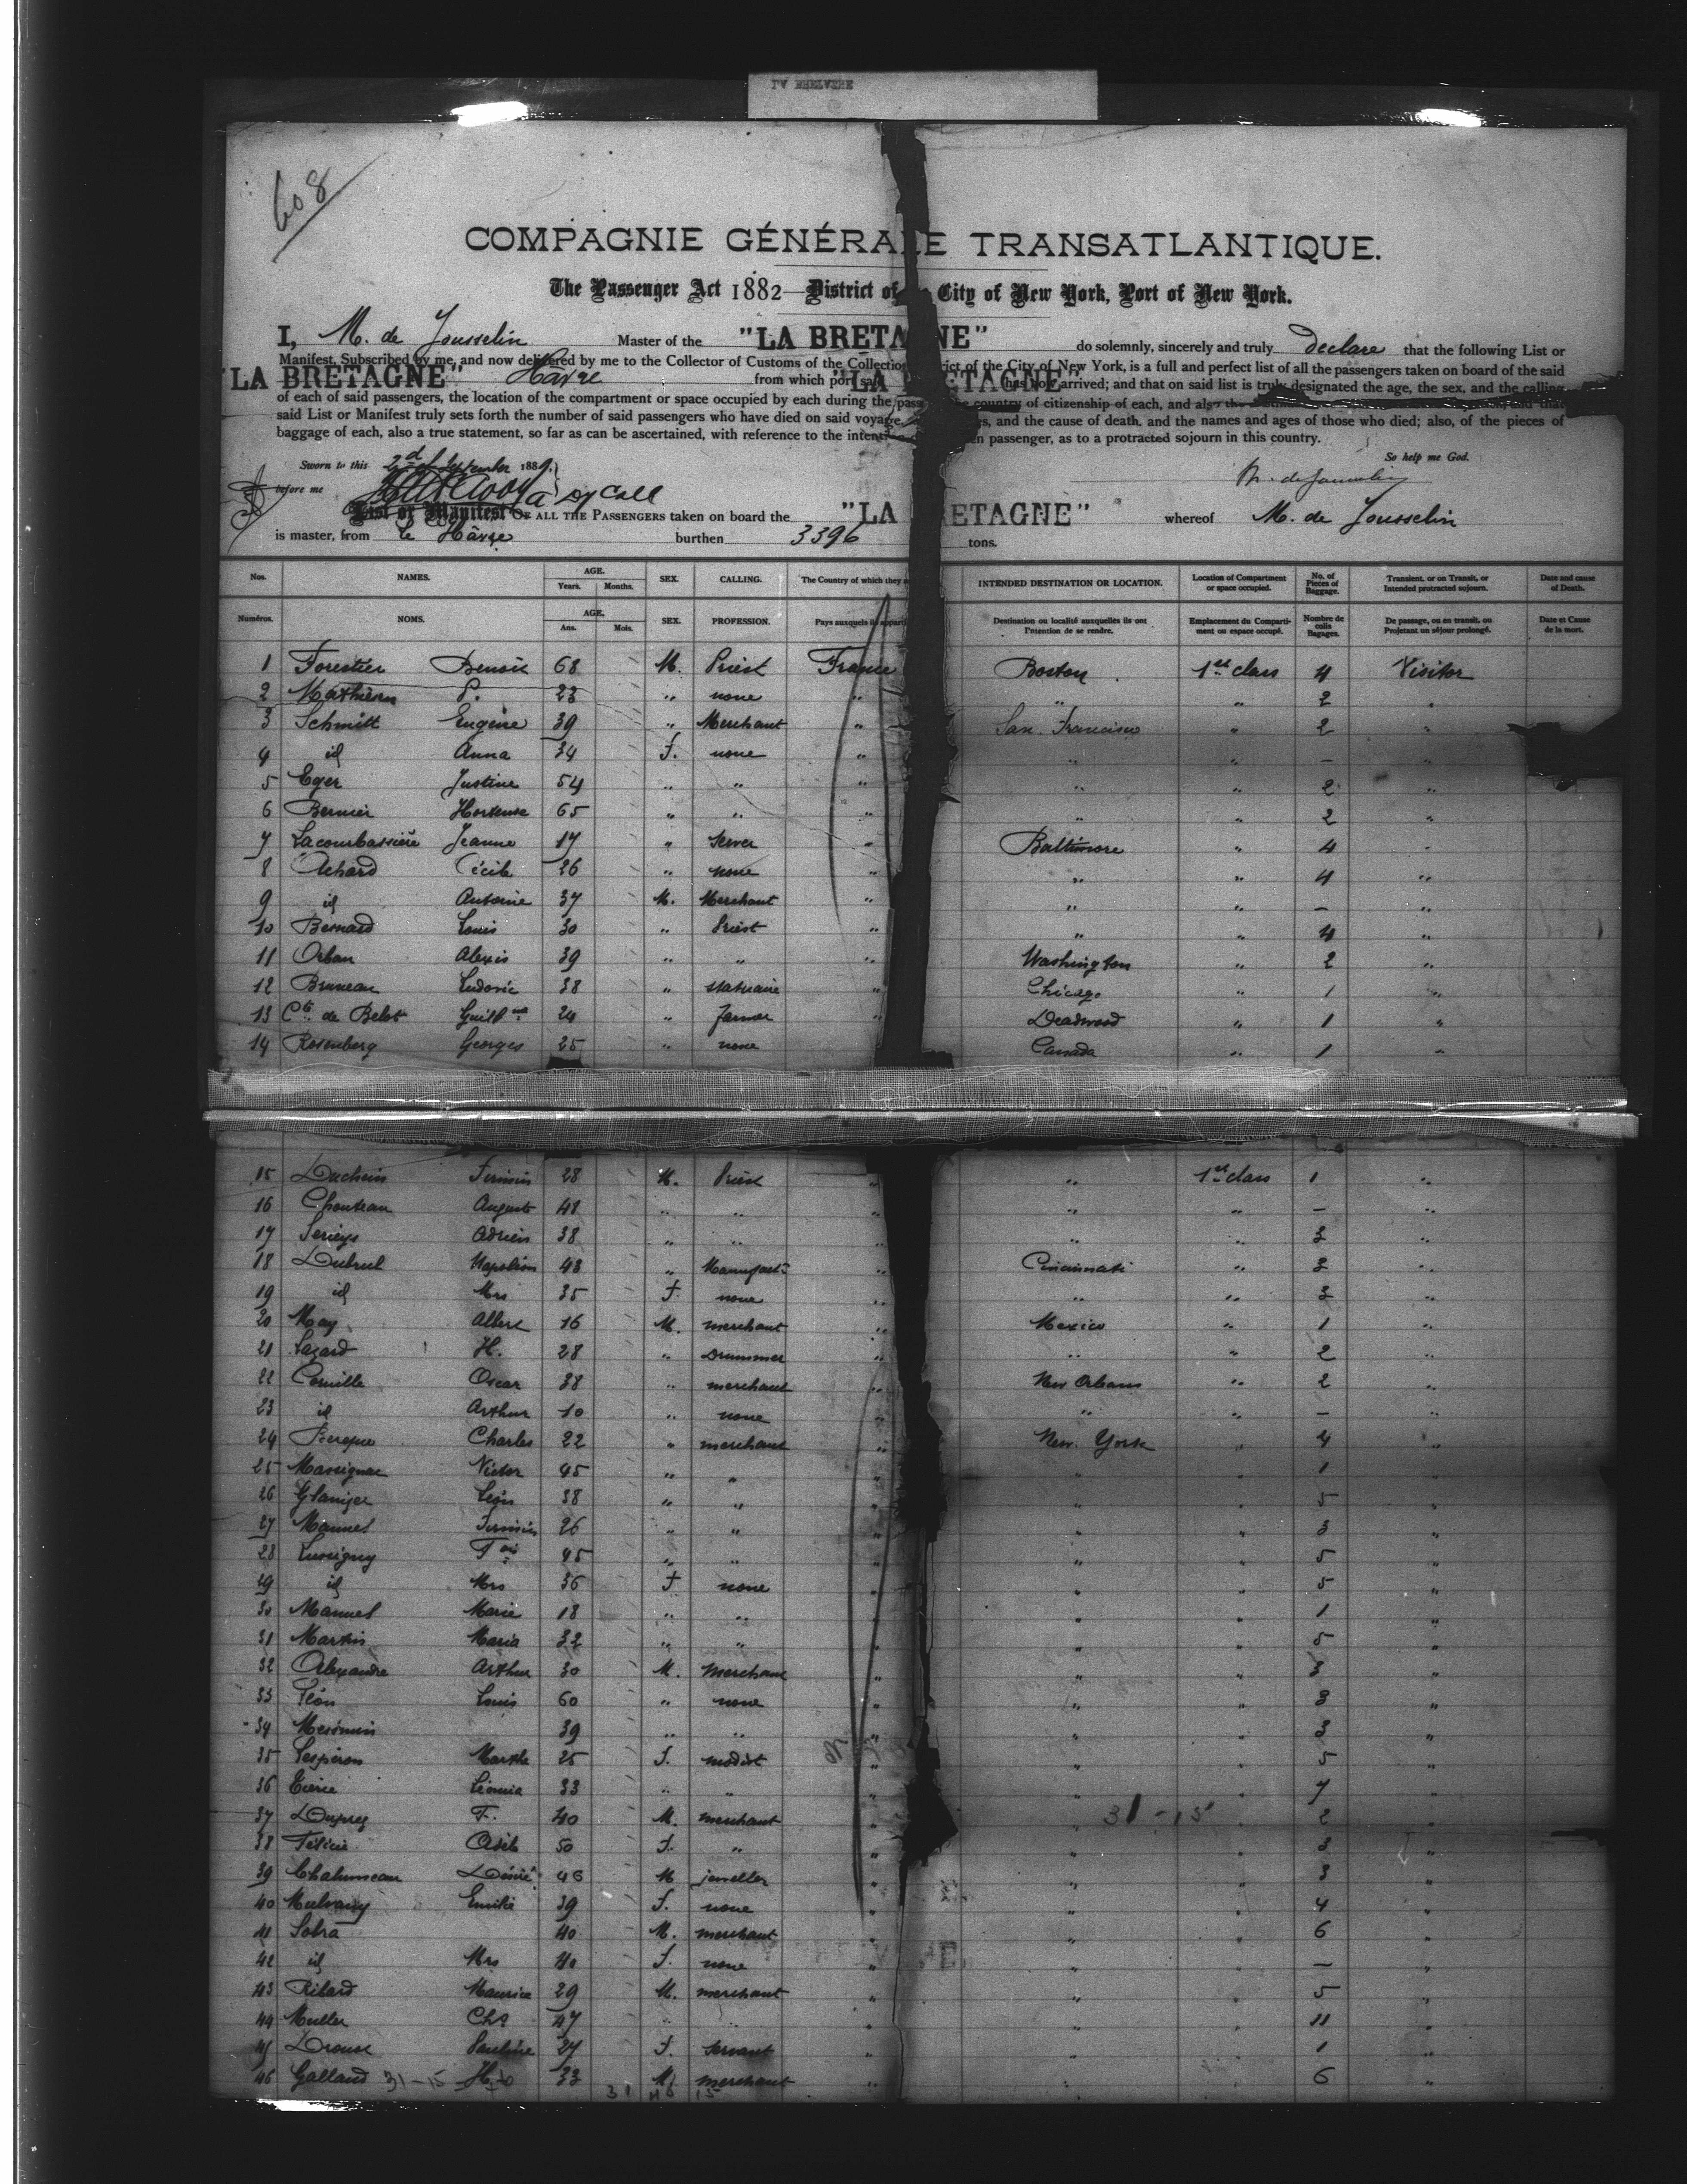 LA BRETAGNE
608
COMPAGNIE GÉNÉRALE TRANSATLANTIQUE.
The Passenger Act 1882—District of City of New York, Port of New York.
I, M. de Jousselin Master of the "LA BRETAGNE" do solemnly, sincerely and truly declare that the following List or
Manifest, Subscribed by me, and now delivered by me to the Collector of Customs of the Collection District of the City of New York, is a full and perfect list of all the passengers taken on board of the said
"LA BRETAGNE" Havre from which port said "LA BRETAGNE" has now arrived; and that on said list is truly designated the age, the sex, and the calling
of each of said passengers, the location of the compartment or space occupied by each during the passage, the country of citizenship of each, and also the
said List or Manifest truly sets forth the number of said passengers who have died on said voyage, and the cause of death, and the names and ages of those who died; also, of the pieces of
baggage of each, also a true statement, so far as can be ascertained, with reference to the intention passenger, as to a protracted sojourn in this country.
So help me God.
Sworn to this 2d of September 1889.
M. de Jousselin
before me
List or Manifest OF ALL THE PASSENGERS taken on board the "LA BRETAGNE" whereof M. de Jousselin
is master, from le Hâvre burthen 3396 tons.
Nos. NAMES. AGE. Years. Months. SEX. CALLING. The Country of which they INTENDED DESTINATION OR LOCATION. Location of Compartment or space occupied. No. of Pieces of Baggage. Transient, or on Transit, or Intended protracted sojourn. Date and cause of Death.
Numéros. NOMS. AGE. Ans. Mois. SEX. PROFESSION. Pays auxquels ils Destination ou localité auxquelles ils ont l'intention de se rendre. Emplacement du Compartiment ou espace occupé. Nombre de colis Bagages. De passage, ou en transit, ou Projetant un séjour prolongé. Date et Cause de la mort.
1 Forestier Benoit 68 M. Priest France Boston 1st class 4 Visitor
2 Mathieu P. 23 " none " " " 2 "
3 Schmitt Eugène 39 " Merchant " San Francisco " 2 "
4 id Anna 34 F. none " " " — "
5 Eger Justine 54 " " " " " 2 "
6 Bernier Hortense 65 " " " " " 2 "
7 Lacourbassière Jeanne 17 " Sewer " Baltimore " 4 "
8 Achard Cécile 26 " none " " " 4 "
9 id Antoine 37 M. Merchant " " " — "
10 Bernard Louis 30 " Priest " " " 4 "
11 Orban Alexis 39 " " " Washington " 2 "
12 Bruneau Ludovic 38 " statuaire " Chicago " 1 "
13 Cte de Belot Guillme 24 " farmer " Deadwood " 1 "
14 Rosenberg Georges 25 " none " Canada " 1 "
15 Duchein Firmin 28 M. Priest " " 1st class 1 "
16 Chouteau Auguste 48 " " " " " — "
17 Serieys Adrien 38 " " " " " 3 "
18 Dubrul Napoléon 43 " Manufact. " Cincinnati " 3 "
19 id Mrs 35 F. none " " " 3 "
20 May Albert 16 M. merchant " Mexico " 1 "
21 Lazard H. 28 " Drummer " " " 2 "
22 Corville Oscar 38 " merchant " New Orleans " 2 "
23 id Arthur 10 " none " " " — "
24 Charles 22 " merchant " New York " 4 "
25 Massignac Victor 45 " " " " " 1 "
26 Léon 38 " " " " " 5 "
27 Mannet Firmin 26 " " " " " 3 "
28 Lusigny Fois 45 " " " " " 5 "
29 id Mrs 36 F. none " " " 5 "
30 Mannet Marie 18 " " " " " 1 "
31 Martin Maria 32 " " " " " 5 "
32 Alexandre Arthur 30 M. merchant " " " 3 "
33 Léon Louis 60 " none " " " 3 "
34 39 " " " " " 3 "
35 Lespéron Marthe 25 F. modist " " " 5 "
36 Léonia 33 " " " " " 7 "
37 Duprez F. 40 M. merchant " " 31-15 " 2 "
38 Félicie Adèle 50 F. " " " " 3 "
39 Chalumeau Désiré 46 M jeweller " " " 3 "
40 Mulvany Emilie 39 F. none " " " 4 "
41 Sobra 40 M. merchant " " " 6 "
42 id Mrs 40 F. none " " " — "
43 Ribard Maurice 29 M. merchant " " " 5 "
44 Muller Chs 47 " " " " " 11 "
45 Drouse Pauline 27 F. servant " " " 1 "
46 Galland 31-15 33 M. merchant " " " 6 "
31 46 15